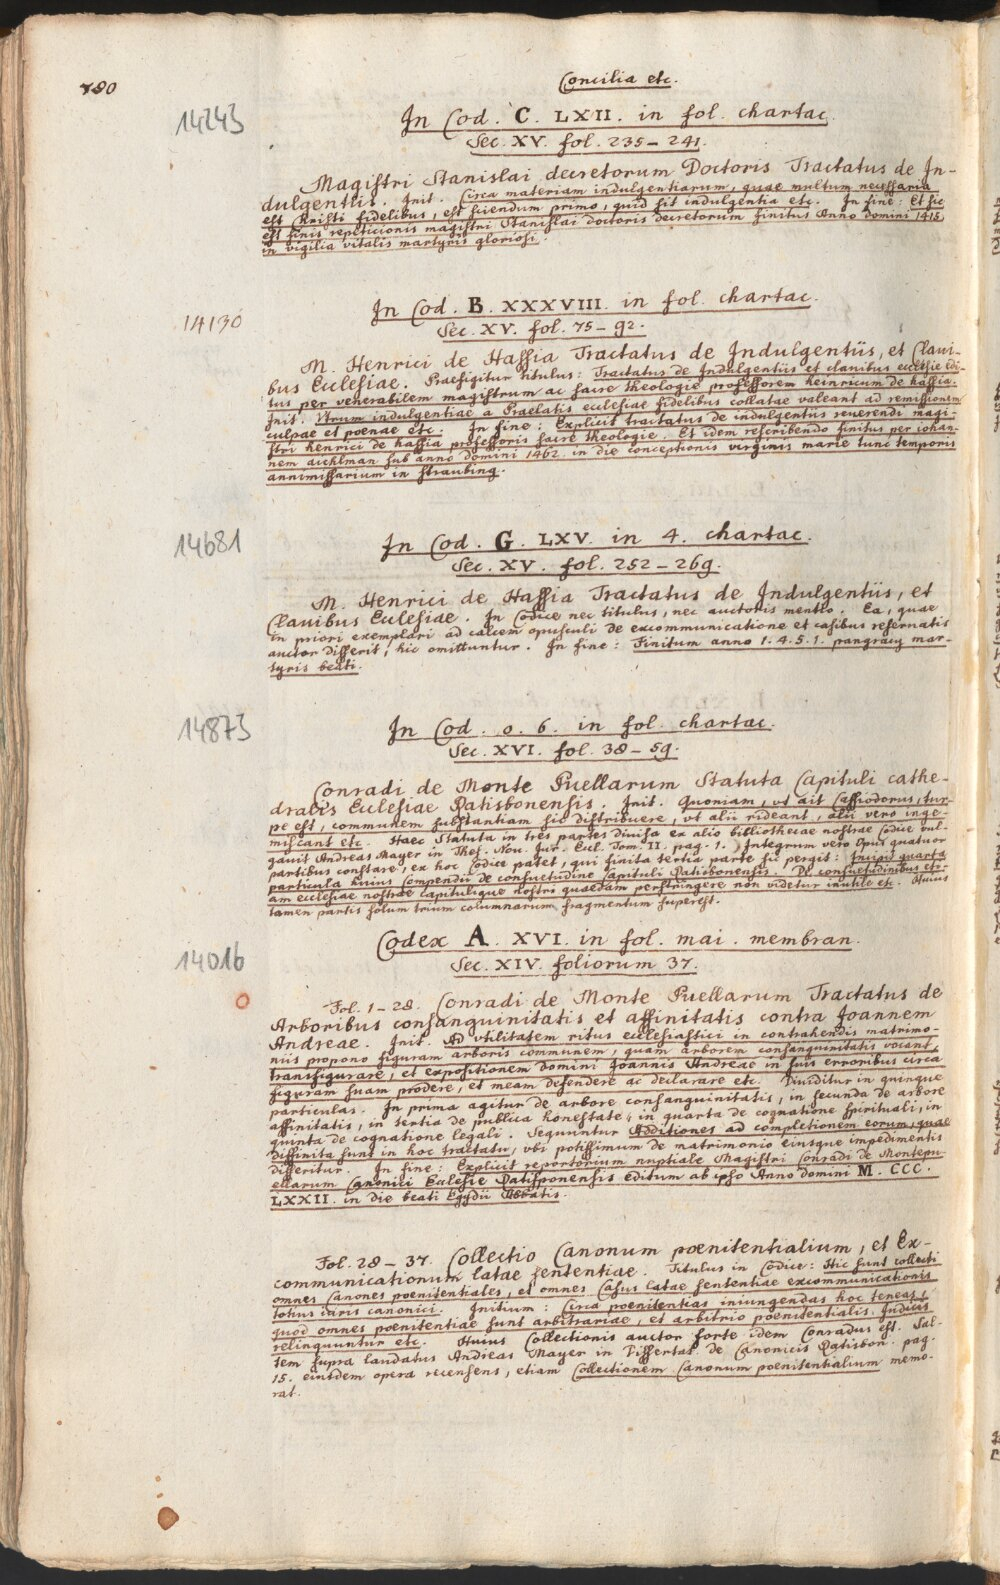 780
Concilia etc.
14243
In Cod. C. LXII. in fol. chartac.
Sec. XV. fol. 235-241.
Magistri Stanislai decretorum Doctoris Tractatus de In-
dulgentiis. Init. Circa materiam indulgentiarum, quae multum necessaria
est Kristi fidelibus, est sciendum primo, quid sit indulgentia etc. In fine: Et sic
est finis repeticionis magistri Stanislai doctoris decretorum finitus Anno domini 1415.
in vigilia vitalis martyris gloriosi.
14130
In Cod. B. XXXVIII. in fol. chartac.
Sec. XV. fol. 75-92.
M. Henrici de Hassia Tractatus de Indulgentiis, et Clavi-
bus Ecclesiae. Praefigitur titulus: Tractatus de Indulgentiis et clanibus ecclesie edi-
tus per venerabilem magistrum ac sacre theologie professorem heinricum de hassia.
Init. Vtrum indulgentiae a Praelatis ecclesiae fidelibus collatae valeant ad remissionem
culpae et poenae etc. In fine: Explicit tractatus de indulgentiis reuerendi magi-
stri henrici de hassia professoris sacre theologie. Et idem rescribendo finitus per iohan-
nem aichlman sub anno domini 1462. in die conceptionis virginis marie tunc temporis
annimissarium in straubing.
14681
In Cod. G. LXV. in 4. chartac.
Sec. XV. fol. 252-269.
M. Henrici de Hassia Tractatus de Indulgentiis, et
Clavibus Ecclesiae. In Codice nec titulus, nec auctoris mentio. Ea, quae
in priori exemplari ad calcem opusculi de excommunicatione et casibus reservatis
auctor disserit, hic omittuntur. In fine: Finitum anno 1.4.5.1. pangracy mar-
tyris beati.
14873
In Cod. o. 6. in fol. chartac.
Sec. XVI. fol. 38-59.
Conradi de Monte Puellarum Statuta Capituli cathe-
dralis Ecclesiae Ratisbonensis. Init. Quoniam, vt ait Cassiodorus, tur-
pe est, communem substantiam sic distribuere, vt alii rideant, alii vero inge-
miscant etc. Haec Statuta in tres partes divisa ex alio bibliothecae nostrae Codice vul-
gavit Andreas Mayer in Thes. Nov. Jur. Eccl. Tom. II. pag. 1. Integrum vero Opus quatuor
partibus constare, ex hoc Codice patet, qui finita tertia parte sic pergit: Incipit quarta
particula huius Compendii de consuetudine Capituli Ratisbonensis. De consuetudinibus eti-
am ecclesiae nostrae Capitulique nostri quaedam perstringere non videtur inutile etc. Huius
tamen partis solum trium columnarum fragmentum superest.
Codex A. XVI. in fol. mai. membran.
Sec. XIV. foliorum 37.
14016
Fol. 1-28. Conradi de Monte Puellarum Tractatus de
Arboribus consanguinitatis et affinitatis contra Joannem
Andreae. Init. Ad vtilitatem ritus ecclesiastici in contrahendis matrimo-
niis propono figuram arboris communem, quam arborem consanguinitatis vocant,
transfigurare, et expositionem Domini Joannis Andreae in suis erroribus circa
figuram suam prodere, et meam defendere ac declarare etc. Dividitur in quinque
particulas. In prima agitur de arbore consanguinitatis, in secunda de arbore
affinitatis, in tertia de publica honestate, in quarta de cognatione spirituali, in
quinta de cognatione legali. Sequuntur Additiones ad completionem eorum, quae
diffinita sunt in hoc tractatu, vbi potissimum de matrimonio eiusque impedimentis
disseritur. In fine: Explicit reportorium nuptiale Magistri Conradi de Montepu-
ellarum Canonici Ecclesie Ratisponensis editum ab ipso Anno domini M. CCC.
LXXII. in die beati Egydii Abbatis.
Fol. 28-37. Collectio Canonum poenitentialium, et Ex-
communicationum latae sententiae. Titulus in Codice: Hic sunt collecti
omnes Canones poenitentiales, et omnes Casus latae sententiae excommunicationis
totius iuris canonici. Initium: Circa poenitentias iniungendas hoc teneas,
quod omnes poenitentiae sunt arbitrariae, et arbitrio poenitentialis Iudicis
relinquuntur etc. Huius Collectionis auctor forte idem Conradus est. Sal-
tem supra laudatus Andreas Mayer in Dissertat. de Canonicis Ratisbon. pag.
15. eiusdem opera recensens, etiam Collectionem Canonum poenitentialium memo-
rat.